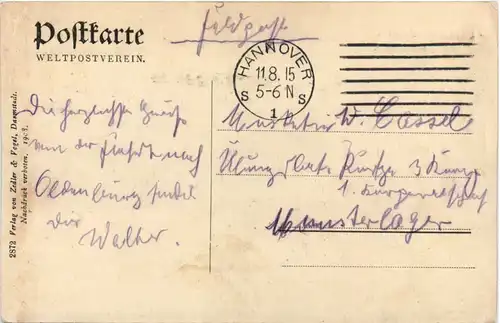 Feldpost
Postkarte
WELTPOSTVEREIN.
HANNOVER
11.8.15
5-6 N
S S
1
Die herzlichsten Grüsse
von der Fahrt nach
Oldenburg sendet
Dir
Walter.
Musketier W. Cassel
3
1. Korporalschaft
Munsterlager
2872 Verlag von Zedler & Vogel, Darmstadt.
Nachdruck verboten. 1908.